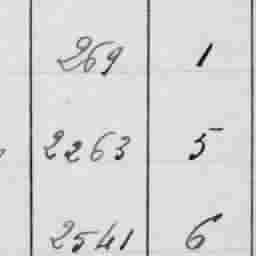 269 1
2263 5
2541 6